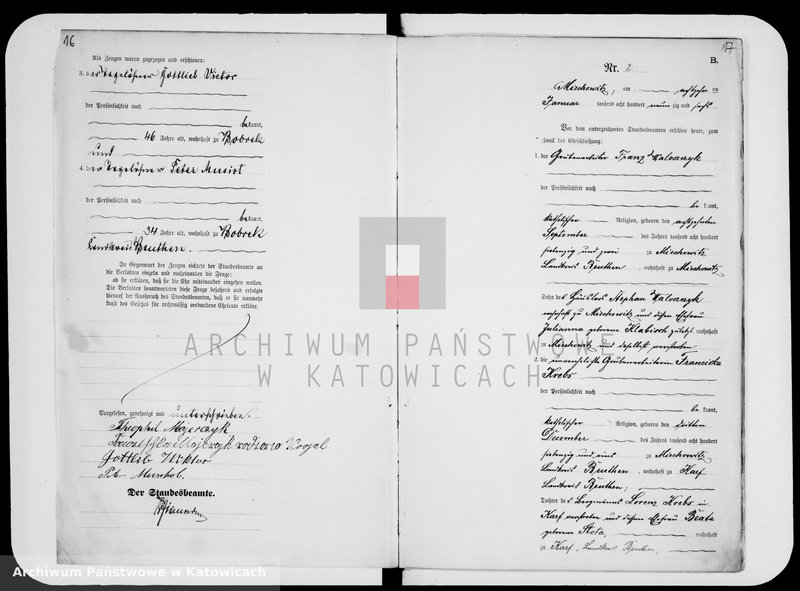 16
Als Zeugen waren zugezogen und erschienen:
3. der Tagelöhner Gottlieb Victor
der Persönlichkeit nach
bekannt,
46 Jahre alt, wohnhaft zu Bobrek
und
4. der Tagelöhner Peter Musiol
der Persönlichkeit nach
bekannt,
34 Jahre alt, wohnhaft zu Bobrek
Landkreis Beuthen.
In Gegenwart der Zeugen richtete der Standesbeamte an
die Verlobten einzeln und nacheinander die Frage:
ob sie erklären, daß sie die Ehe miteinander eingehen wollen.
Die Verlobten beantworteten diese Frage bejahend und erfolgte
hierauf der Ausspruch des Standesbeamten, daß er sie nunmehr
kraft des Gesetzes für rechtmäßig verbundene Eheleute erkläre.
Vorgelesen, genehmigt und unterschrieben.
Theophil Majczyk
Majczyk
Gottlib Wiktor
Der Standesbeamte.
17
B.
Nr. 2
Miechowitz, am achtzehnten
Januar tausend acht hundert neunzig und sechs
Vor dem unterzeichneten Standesbeamten erschien heute, zum
Zweck der Eheschließung:
1. der Grubenarbeiter Franz Walonczyk
der Persönlichkeit nach
bekannt,
katholischer Religion, geboren den achtzehnten
September des Jahres tausend acht hundert
siebenzig und zwei zu Miechowitz,
Landkreis Beuthen, wohnhaft zu Miechowitz
Sohn des Häuslers Stephan Walonczyk
wohnhaft zu Miechowitz und dessen Ehefrau
Julianna geborenen Klabisch zuletzt wohnhaft
zu Miechowitz und daselbst verstorben
2. die unverehelichte Grubenarbeiterin Franciska
Krebs
der Persönlichkeit nach
bekannt,
katholischer Religion, geboren den dritten
December des Jahres tausend acht hundert
siebenzig und eins zu Miechowitz
Landkreis Beuthen, wohnhaft zu Karf
Landkreis Beuthen,
Tochter des Bergmanns Lorenz Krebs in
Karf verstorben und dessen Ehefrau Beata
geborenen Slota, wohnhaft
zu Karf, Landkreis Beuthen,
ARCHIWUM PAŃSTWOWE
W KATOWICACH
Archiwum Państwowe w Katowicach